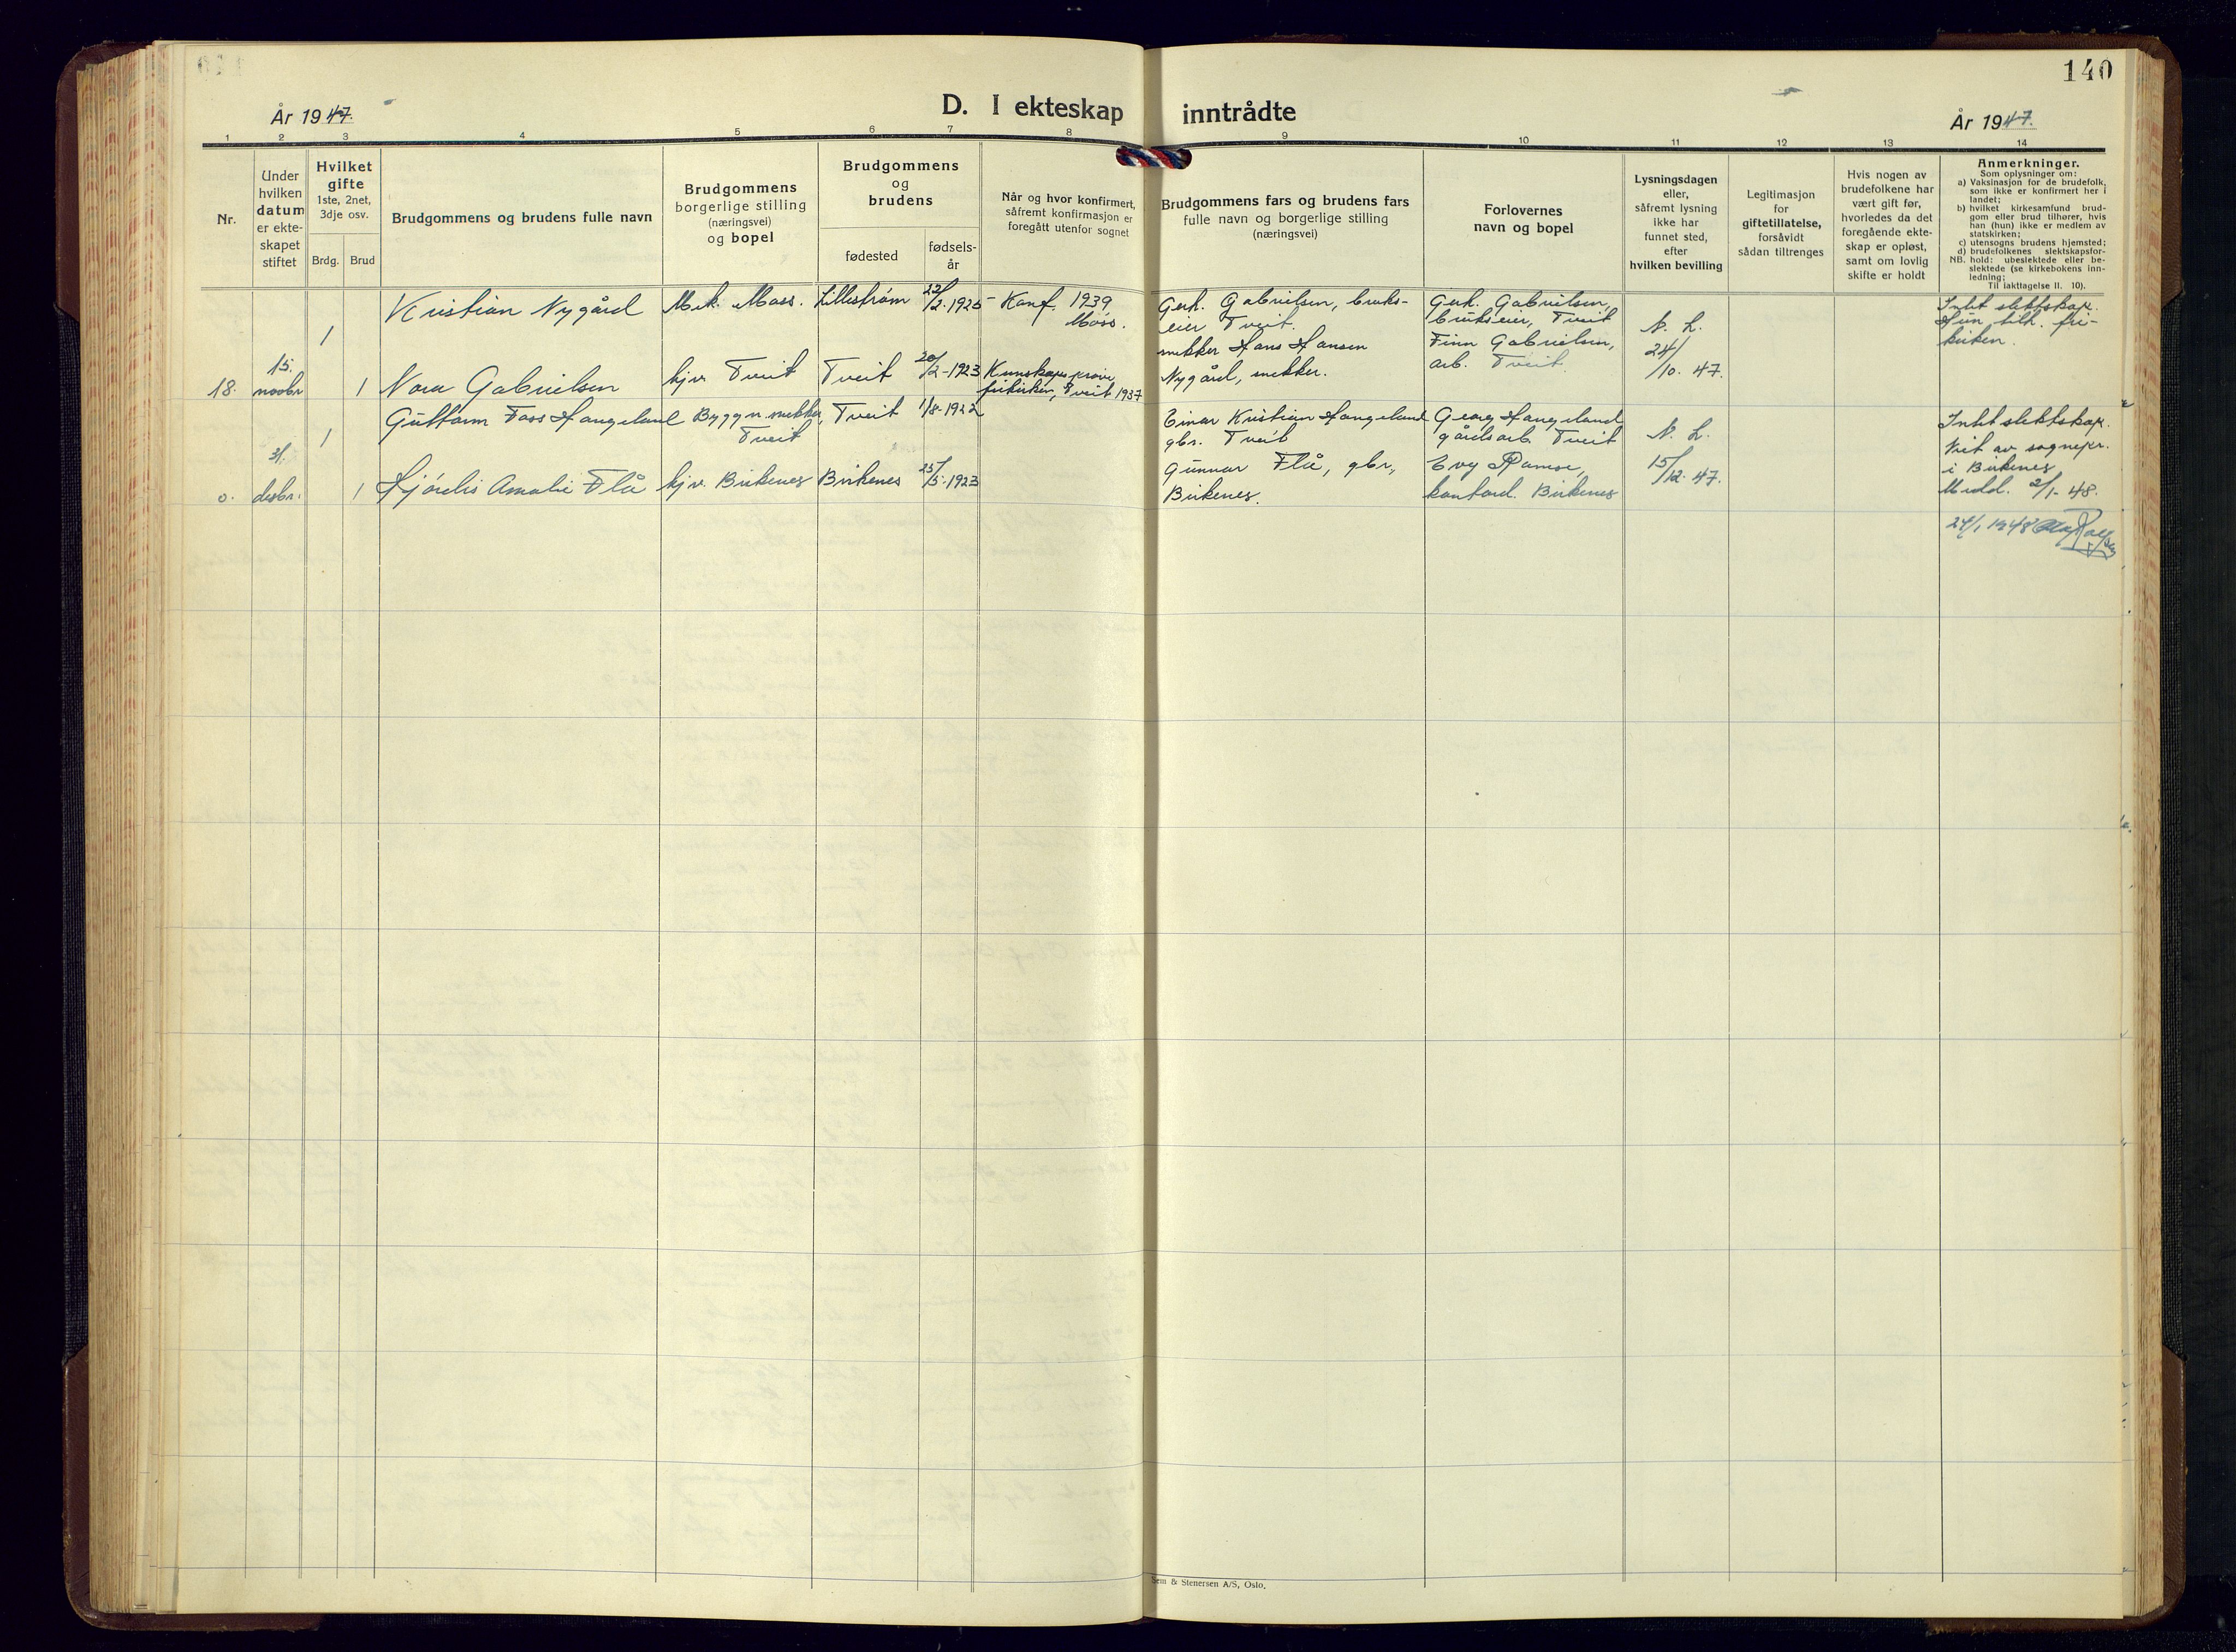 140
År 1947.
D. I ekteskap inntrådte
År 1947.
1 2 3 4 5 6 7 8 9 10 11 12 13 14
Nr.
Under
hvilken
datum
er ekte-
skapet
stiftet
Hvilket
gifte
1ste, 2net,
3dje osv.
Brdg. Brud
Brudgommens og brudens fulle navn
Brudgommens
borgerlige stilling
(næringsvei)
og bopel
Brudgommens
og
brudens
fødested
fødsels-
år
Når og hvor konfirmert,
såfremt konfirmasjon er
foregått utenfor sognet
Brudgommens fars og brudens fars
fulle navn og borgerlige stilling
(næringsvei)
Forlovernes
navn og bopel
Lysningsdagen
eller,
såfremt lysning
ikke har
funnet sted,
efter
hvilken bevilling
Legitimasjon
for
giftetillatelse,
forsåvidt
sådan tiltrenges
Hvis nogen av
brudefolkene har
vært gift før,
hvorledes da det
foregående ekte-
skap er opløst,
samt om lovlig
skifte er holdt
Anmerkninger.
Som oplysninger om:
a) Vaksinasjon for de brudefolk,
som ikke er konfirmert her i
landet;
b) hvilket kirkesamfund brud-
gom eller brud tilhører, hvis
han (hun) ikke er medlem av
statskirken;
c) utensogns brudens hjemsted;
d) brudefolkenes slektskapsfor-
NB. hold: ubeslektede eller be-
slektede (se kirkebokens inn-
ledning;
Til iakttagelse II. 10).
18.
15.
novbr
1
Kristian Nygård
Mek. Moss.
Lillestrøm
22/2-1925
Konf. 1939
Moss.
1
Nora Gabrielsen
hjv. Tveit
Tveit
20/2-1923
Kunnskapsprøve
frikirken, Tveit 1937
Gerh. Gabrielsen, bruks-
eier Tveit.
snekker Hans Hansen
Nygård, snekker.
Gerh. Gabrielsen,
brukseier, Tveit
Finn Gabrielsen,
arb. Tveit.
N. L.
24/
/10. 47.
Intet slektskap.
Hun tilh. fri-
kirken.
o.
31.
desbr.
1
Guttorm Foss Hangeland
Byggn. snekker,
Tveit
Tveit
1/8-1922
1
Hjørdis Amalie Flå
hjv. Birkenes
Birkenes
25/5-1923
Einar Kristian Hangeland
gbr. Tveit
Gunnar Flå, gbr,
Birkenes.
Georg Hangeland
gårdsarb. Tveit
Evy Ramse,
kontord. Birkenes
N. L.
15/12. 47.
Intet slektskap.
Viet av sognepr.
i Birkenes
Meld. 2/1-48.
24/1 1948
Sem & Stenersen A/S, Oslo.